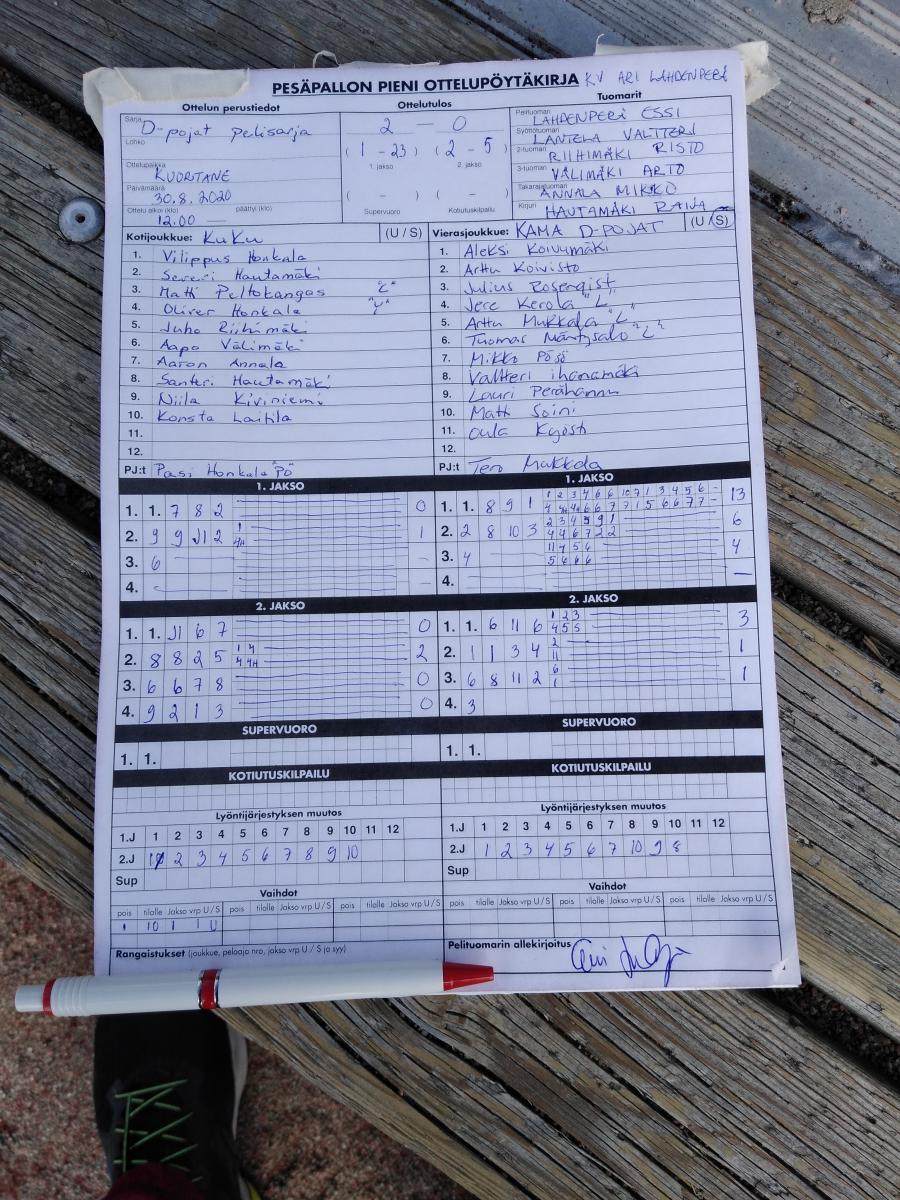 PESÄPALLON PIENI OTTELUPÖYTÄKIRJA KV ARI LAHDENPERÄ
Ottelun perustiedot
Sarja
D-pojat pelisarja
Lohko
Ottelupaikka
KUORTANE
Päivämäärä
30.8.2020
Ottelu alkoi (klo) päättyi (klo)
12.00 —
Ottelutulos
2 — 0
( 1 - 23 ) ( 2 - 5 )
1. jakso 2. jakso
( - ) ( - )
Supervuoro Kotiutuskilpailu
Tuomarit
Pelituomari LAHDENPERÄ ESSI
Syöttötuomari LANTELA VALTTERI
2-tuomari RIIHIMÄKI RISTO
3-tuomari VÄLIMÄKI ARTO
Takarajatuomari ANNALA MIKKO
Kirjuri HAUTAMÄKI RAIJA
Kotijoukkue: KuKu (U / S)
1. Vilippus Honkala
2. Severi Hautamäki
3. Matti Peltokangas "L"
4. Oliver Honkala "V"
5. Juho Riihimäki
6. Aapo Välimäki
7. Aaron Annala
8. Santeri Hautamäki
9. Niila Kiviniemi
10. Konsta Laitila
11.
12.
PJ:t Pasi Honkala "PÖ"
Vierasjoukkue: KAMA D-POJAT (U / S)
1. Aleksi Koivumäki
2. Arttu Koivisto
3. Julius Rosenqist
4. Jere Kerola "L"
5. Arttu Mukkala "L"
6. Tuomas Mäntysalo "L"
7. Mikko Pösö
8. Valtteri ihanamäki
9. Lauri Perähannu
10. Matti Soini
11. Oula Kyösti
12.
PJ:t Tero Mukkala
1. JAKSO
1. 1. 7 8 2 0
2. 9 9 J1 2 1 4H 1
3. 6 –
4. – –
1. JAKSO
1. 1. 8 9 1 13
2. 2 8 10 3 2 3 4 5 9 1 6
4 4 6 7 2 2
3. 4 11 4 5 6 4
5 6 6 6
4. —
2. JAKSO
1. 1. J1 6 7 0
2. 8 8 2 5 1 4 2
4 4H
3. 6 6 7 8 0
4. 9 2 1 3 0
2. JAKSO
1. 1. 6 11 6 1 2 3 3
4 5 5
2. 1 1 3 4 2 1
11
3. 6 8 11 2 6 1
1
4. 3
SUPERVUORO
1. 1.
SUPERVUORO
1. 1.
KOTIUTUSKILPAILU
KOTIUTUSKILPAILU
Lyöntijärjestyksen muutos
1.J 1 2 3 4 5 6 7 8 9 10 11 12
2.J 1 2 3 4 5 6 7 8 9 10
Sup
Lyöntijärjestyksen muutos
1.J 1 2 3 4 5 6 7 8 9 10 11 12
2.J 1 2 3 4 5 6 7 10 9 8
Sup
Vaihdot
pois tilalle Jakso vrp U / S pois tilalle Jakso vrp U / S pois tilalle Jakso vrp U / S
1 10 1 1 U
Vaihdot
pois tilalle Jakso vrp U / S pois tilalle Jakso vrp U / S pois tilalle Jakso vrp U / S
Rangaistukset (joukkue, pelaaja nro, jakso vrp U / S ja syy)
Pelituomarin allekirjoitus